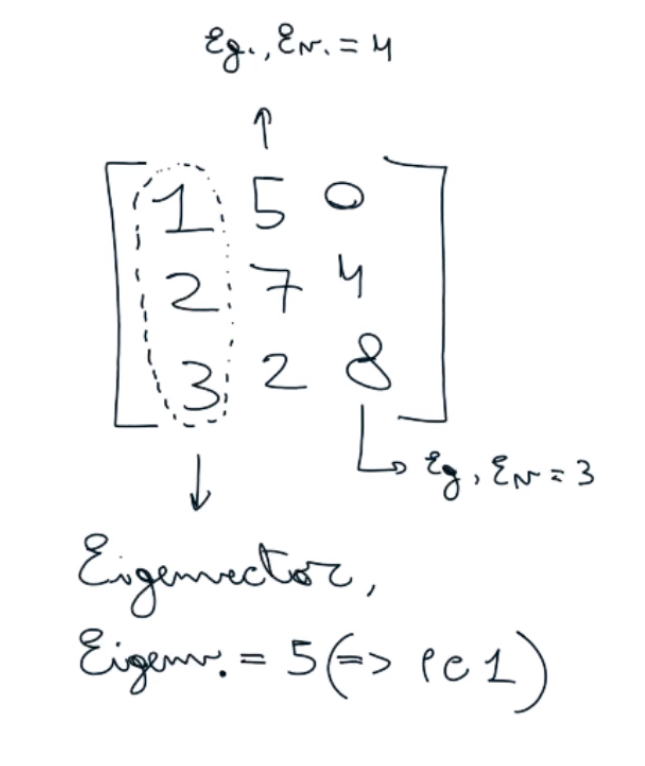 Eg., Ev. = 4
↑
1 5 0
2 7 4
3 2 8
↳ Eg, Ev = 3
↓
Eigenvector,
Eigenv. = 5 (=> PC1)